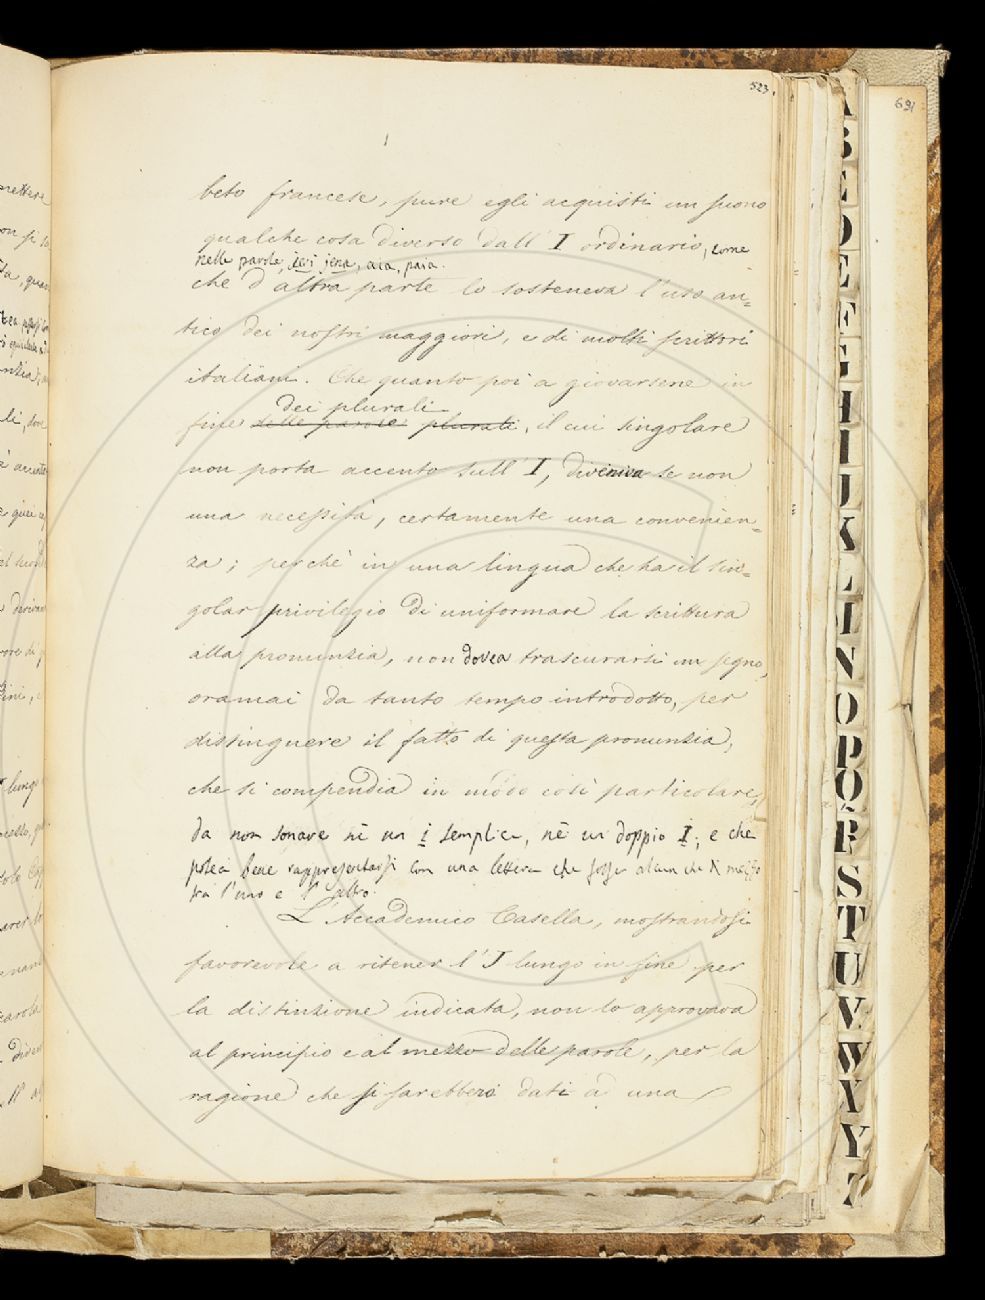 523.
691
beto francese, pure egli acquisti un suono
qualche cosa diverso dall' I ordinario, come
nelle parole, jeri jena, aja, paja.
che d'altra parte lo sosteneva l'uso an=
tico dei nostri maggiori, e di molti scrittori
italiani. Che quanto poi a giovarsene in
dei plurali
fine delle parole plurali, il cui singolare
non porta accento sull' I, diveniva se non
una necessità, certamente una convenien=
za; perchè in una lingua che ha il sin=
golar privilegio di uniformare la scrittura
alla pronunzia, non dovea trascurarsi un segno,
oramai da tanto tempo introdotto, per
distinguere il fatto di questa pronunzia,
che si compendia in modo così particolare,
da non sonare nè un i semplice, nè un doppio I; e che
potea bene rappresentarsi con una lettera che fosse alcun che di mezzo
fra l'uno e l'altro.
L'Accademico Casella, mostrandosi
favorevole a ritener l'J lungo in fine per
la distinzione indicata, non lo approvava
al principio e al mezzo delle parole, per la
ragione che si sarebbero dati a una
A
B
C
D
E
F
G
H
I
J
K
L
M
N
O
P
Q
R
S
T
U
V
W
X
Y
Z